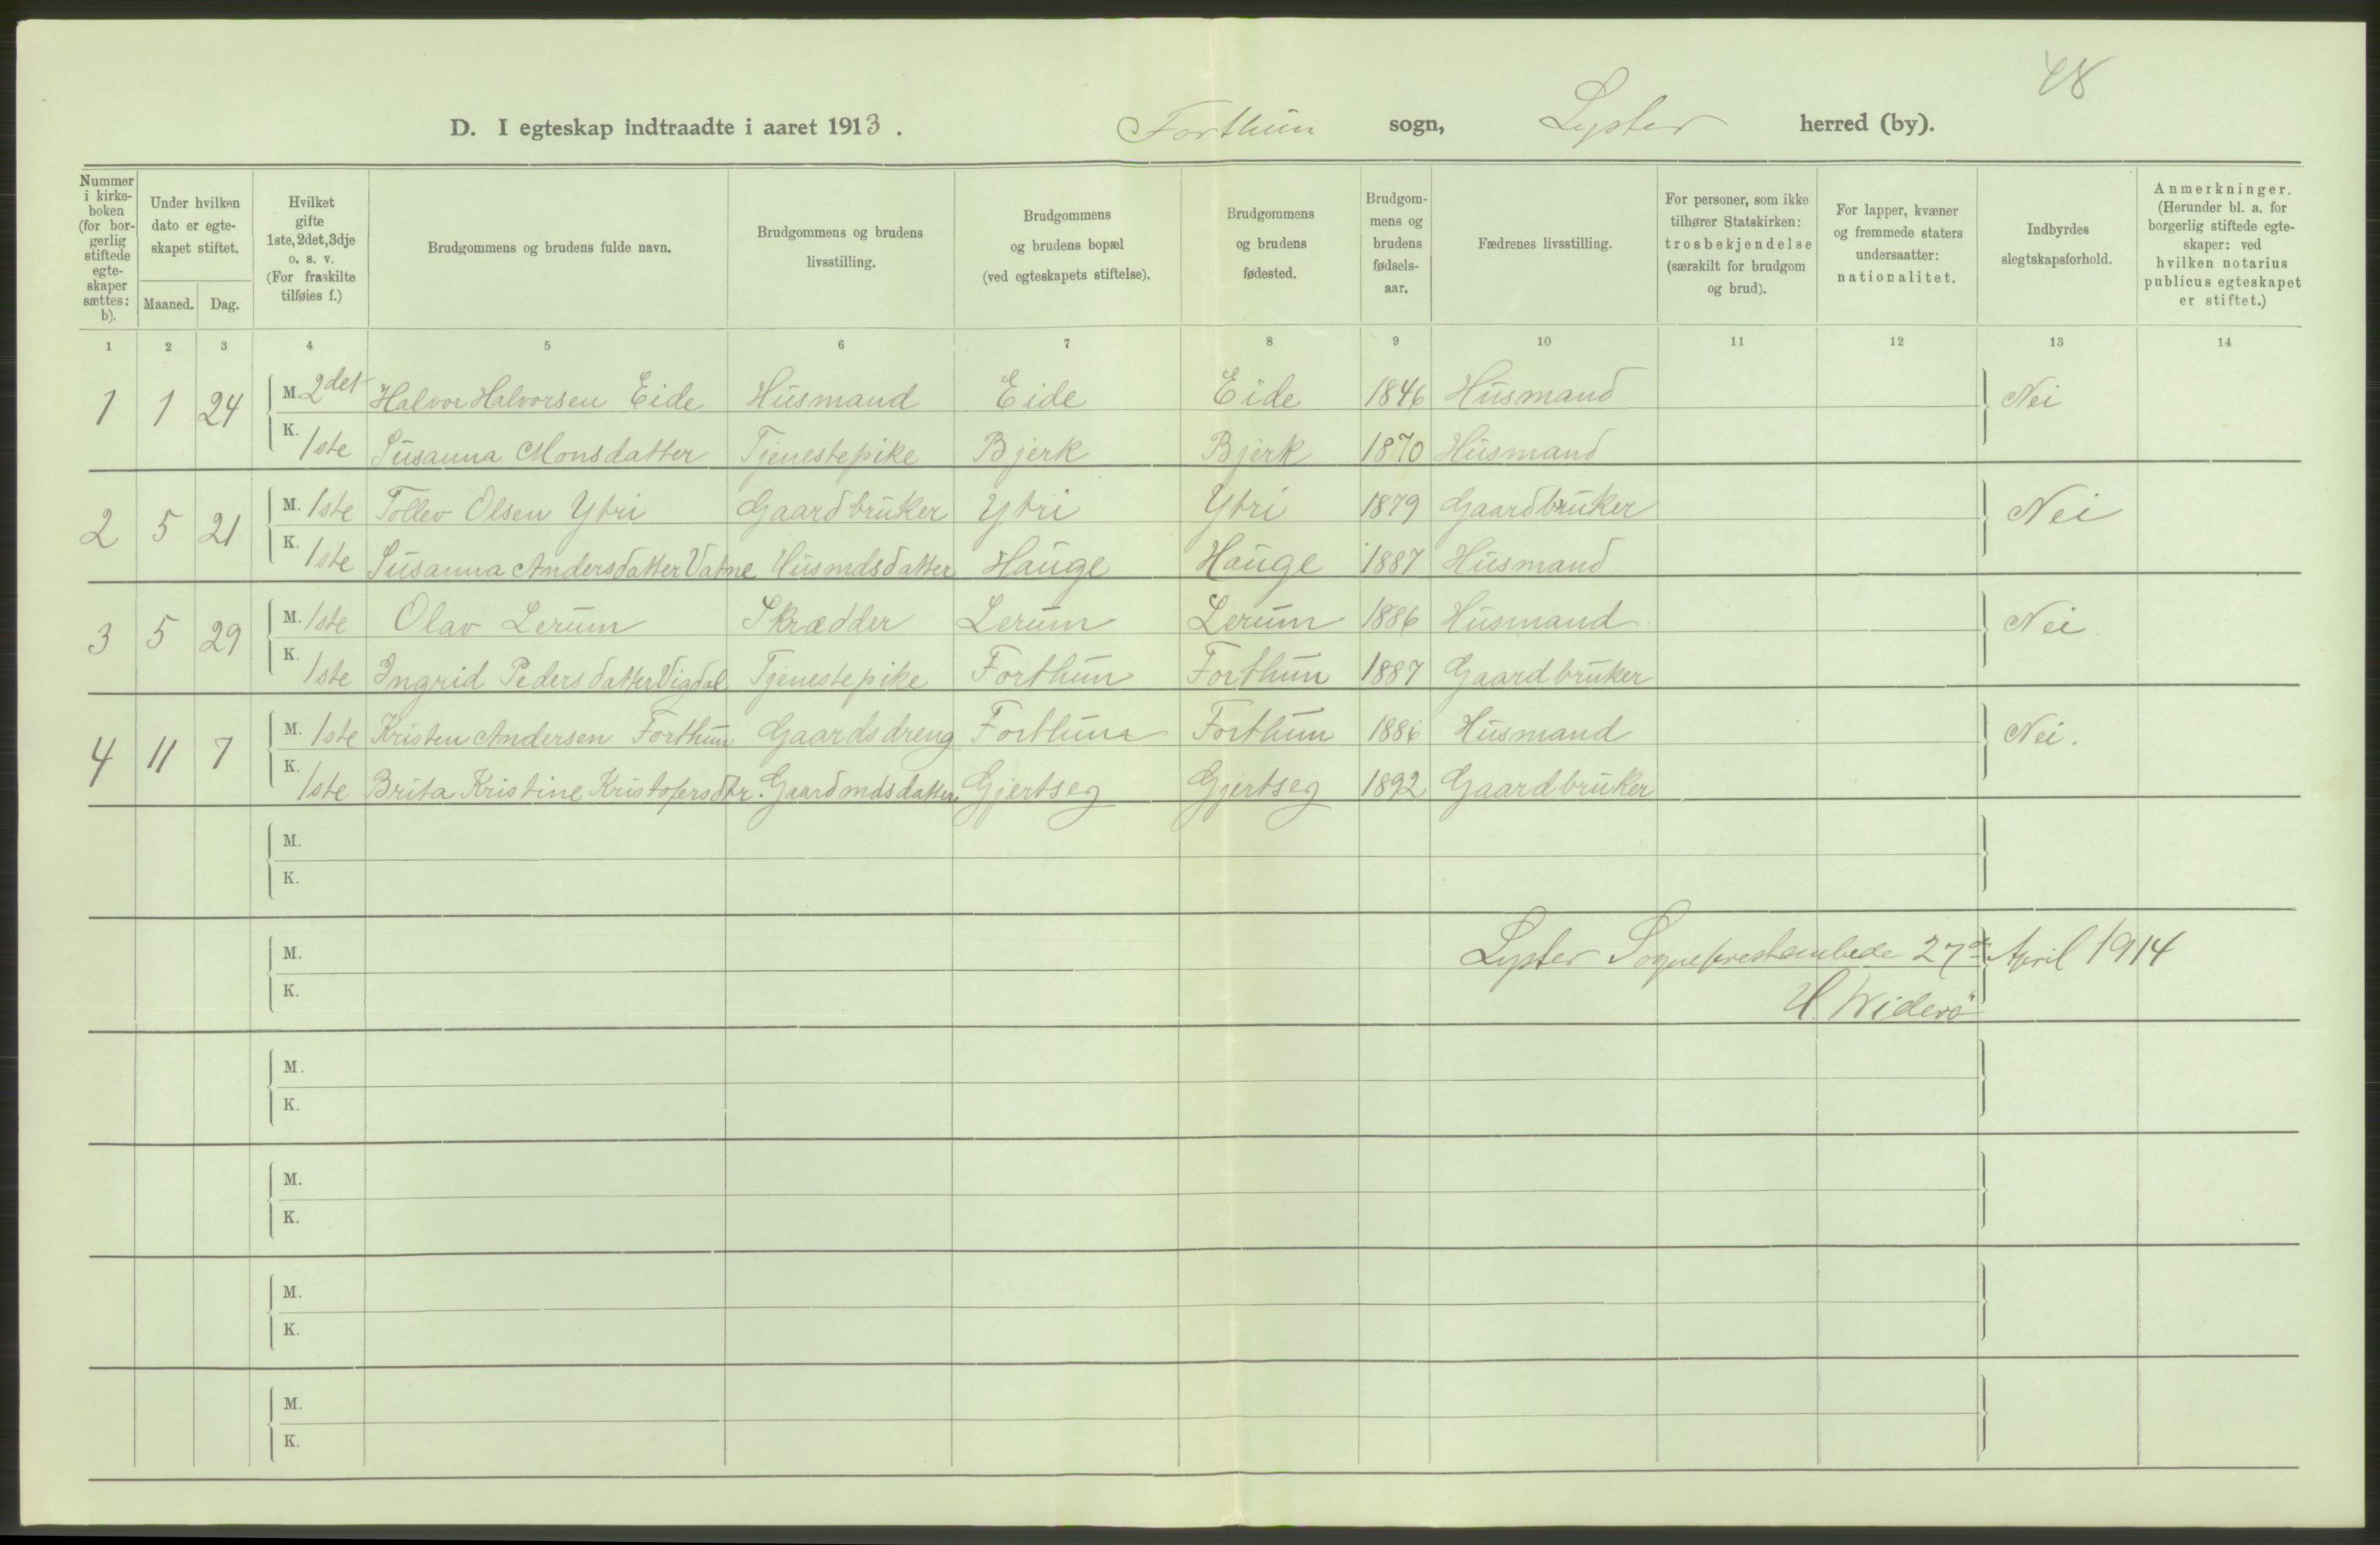 48
D. I egteskap indtraadte i aaret 1913. Forthun sogn, Lyster herred (by).
Nummer i kirkeboken (for borgerlig stiftede egteskaper sættes: b).
Under hvilken dato er egteskapet stiftet.
Maaned. Dag.
Hvilket gifte 1ste, 2det, 3dje o. s. v. (For fraskilte tilføies f.)
Brudgommens og brudens fulde navn.
Brudgommens og brudens livsstilling.
Brudgommens og brudens bopæl (ved egteskapets stiftelse).
Brudgommens og brudens fødested.
Brudgommens og brudens fødselsaar.
Fædrenes livsstilling.
For personer, som ikke tilhører Statskirken: trosbekjendelse (særskilt for brudgom og brud).
For lapper, kvæner og fremmede staters undersaatter: nationalitet.
Indbyrdes slegtskapsforhold.
Anmerkninger. (Herunder bl. a. for borgerlig stiftede egteskaper: ved hvilken notarius publicus egteskapet er stiftet.)
1 2 3 4 5 6 7 8 9 10 11 12 13 14
1 1 24 M. 2det Halvor Halvorsen Eide Husmand Eide Eide 1846 Husmand Nei
K. 1ste Susanna Monsdatter Tjenestepike Bjerk Bjerk 1870 Husmand
2 5 21 M. 1ste Tollev Olsen Ytri Gaardbruker Ytri Ytri 1879 Gaardbruker Nei
K. 1ste Susanna Andersdatter Vatne Husmdsdatter Hauge Hauge 1887 Husmand
3 5 29 M. 1ste Olav Lerum Skrædder Lerum Lerum 1886 Husmand Nei
K. 1ste Ingrid Pedersdatter Vigdal Tjenestepike Forthun Forthun 1887 Gaardbruker
4 11 7 M. 1ste Kristen Andersen Forthun Gaardsdreng Forthun Forthun 1886 Husmand Nei.
K. 1ste Brita Kristine Kristofersdtr. Gaardmdsdatter Gjertseg Gjertseg 1892 Gaardbruker
M.
K.
M. Lyster Sogneprestembede 27de April 1914
K. H. Widerö
M.
K.
M.
K.
M.
K.
M.
K.